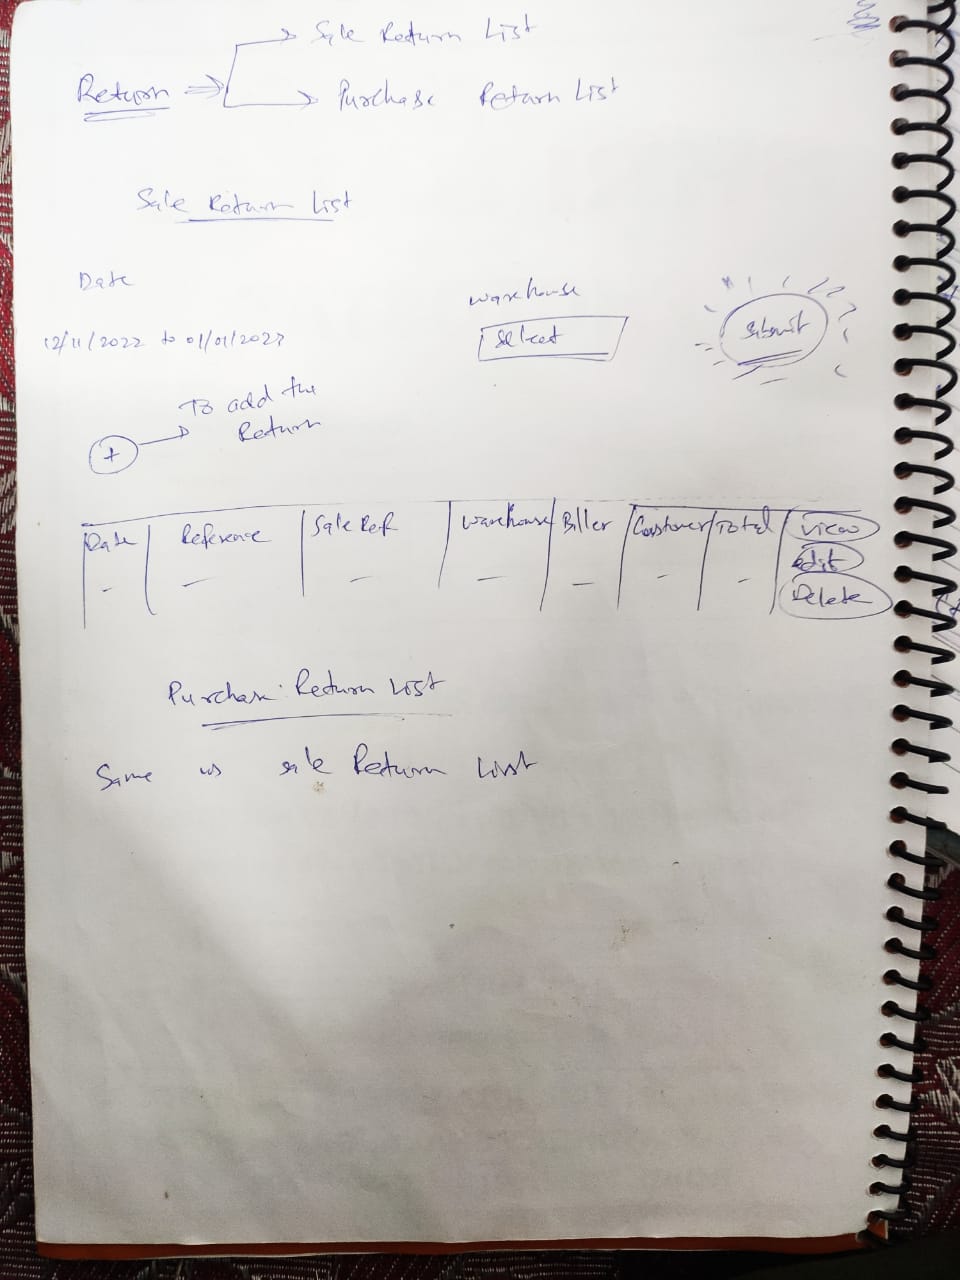 Sale Return List
Return
Purchase Return List
Sale Return List
Date
warehouse
12/11/2022 to 01/01/2023
Select
Submit
To add the
Return
+
Date Reference Sale Ref warehouse Biller Customer Total view
edit
Delete
Purchase Return List
Same as sale Return List